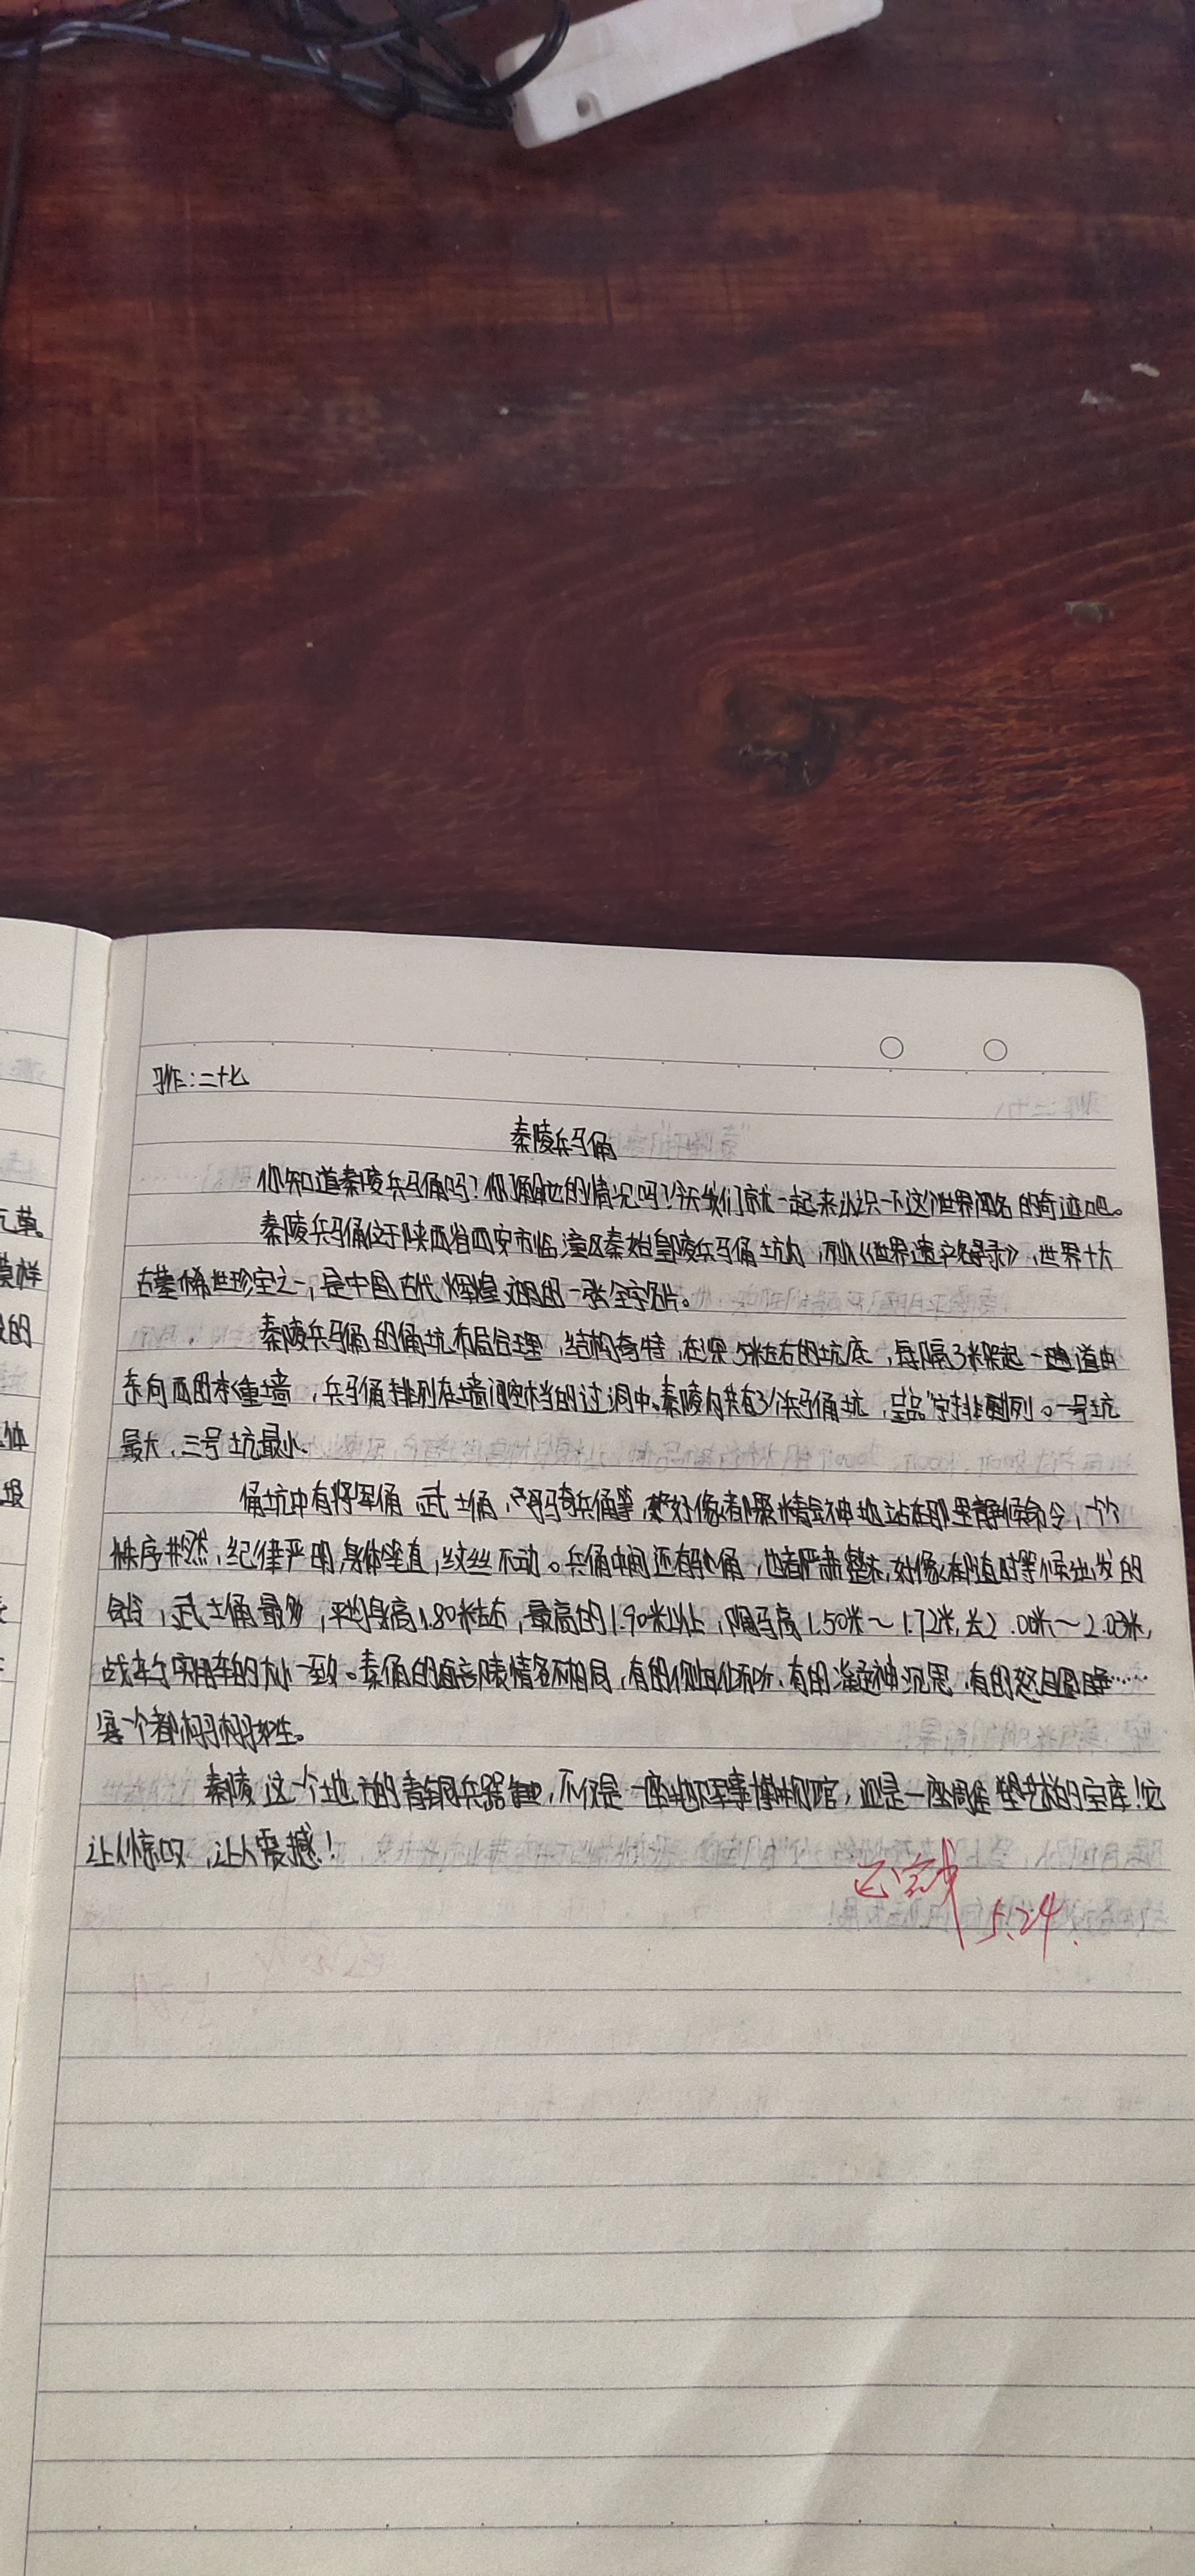 班:二十七
秦陵兵马俑
你知道秦陵兵马俑吗?你了解它的情况吗?今天我们就一起来认识一下这个世界闻名的奇迹吧。
秦陵兵马俑位于陕西省西安市临潼区秦始皇陵兵马俑坑内,列入《世界遗产名录》,世界十大
古墓稀世珍宝之一,是中国古代辉煌文明的一张金字名片。
秦陵兵马俑的俑坑布局合理,结构奇特,在深5米左右的坑底,每隔3米架起一道由
东向西的承重墙,兵马俑排列在墙间空档的过洞中。秦陵内共有3个兵马俑坑,呈“品”字排列。一号坑
最大,三号坑最小。
俑坑中有将军俑 武士俑,骑兵俑等,好像都聚精会神地站在那里静候命令,个个
秩序井然,纪律严明,身体笔直,纹丝不动。兵俑中间还有马俑,也都严肃整齐,好像随时等候出发的
命令,武士俑最多,平均身高1.80米左右,最高的1.90米以上,陶马高1.50米~1.72米,长2.00米~2.03米,
战车与实用车的大小一致。秦俑的面部表情各不相同,有的侧耳倾听,有的凝神沉思,有的怒目圆睁……
每个都栩栩如生。
秦陵这个地方的青铜兵器,不仅是一座地下军事博物馆,还是一座雕塑艺术的宝库!它
让人惊叹,让人震撼!
5.24
元草。
模样
的
体